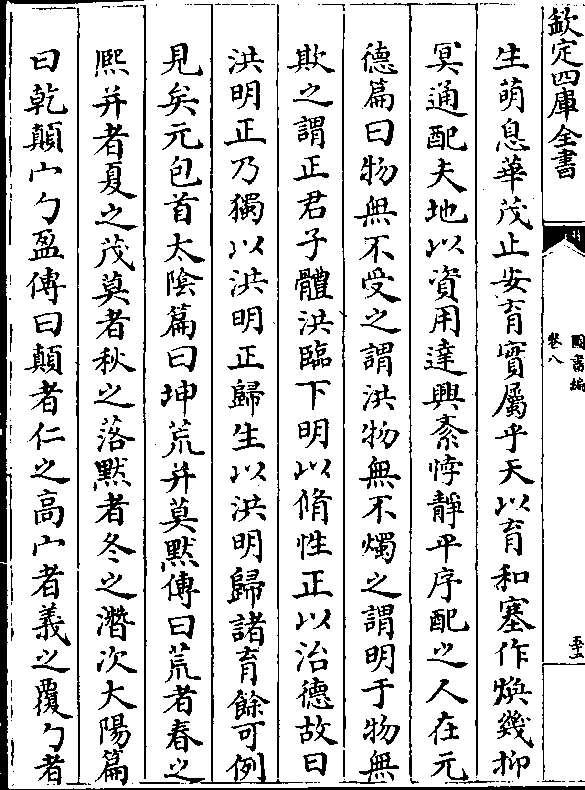 欽定四庫全書
圖書編
卷八
至
生萌息華茂止安育實屬乎天以育和塞作煥幾抑
冥通配夫地以資用達興紊悖靜平序配之人在元
德篇曰物無不受之謂洪物無不燭之謂明于物無
欺之謂正君子體洪臨下明以脩性正以治德故曰
洪明正乃獨以洪明正歸生以洪明歸諸育餘可例
見矣元包首太陰篇曰坤荒幷莫默傳曰荒者春之
熈幷者夏之茂莫者秋之落默者冬之濳次大陽篇
曰乾顛宀勹盈傳曰顛者仁之高宀者義之覆勹者